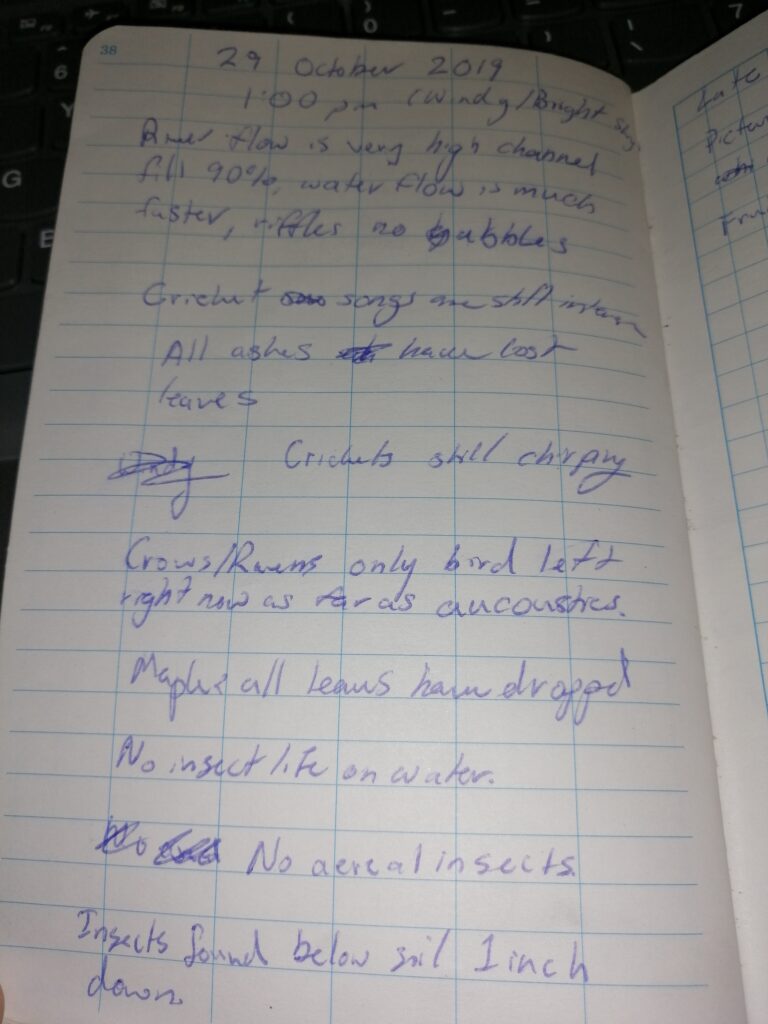 38
29 October 2019
1:00 pm (Windy/Bright Sky)
River flow is very high channel
fill 90%, water flow is much
faster, riffles no babbles
Cricket songs are still
All ashes have lost
leaves
Windy Crickets still chirping
Crows/Ravens only bird left
right now as far as aucoustics.
Maples all leaves have dropped
No insect life on water.
No No aereal insects.
Insects found below soil 1 inch
down.
Late